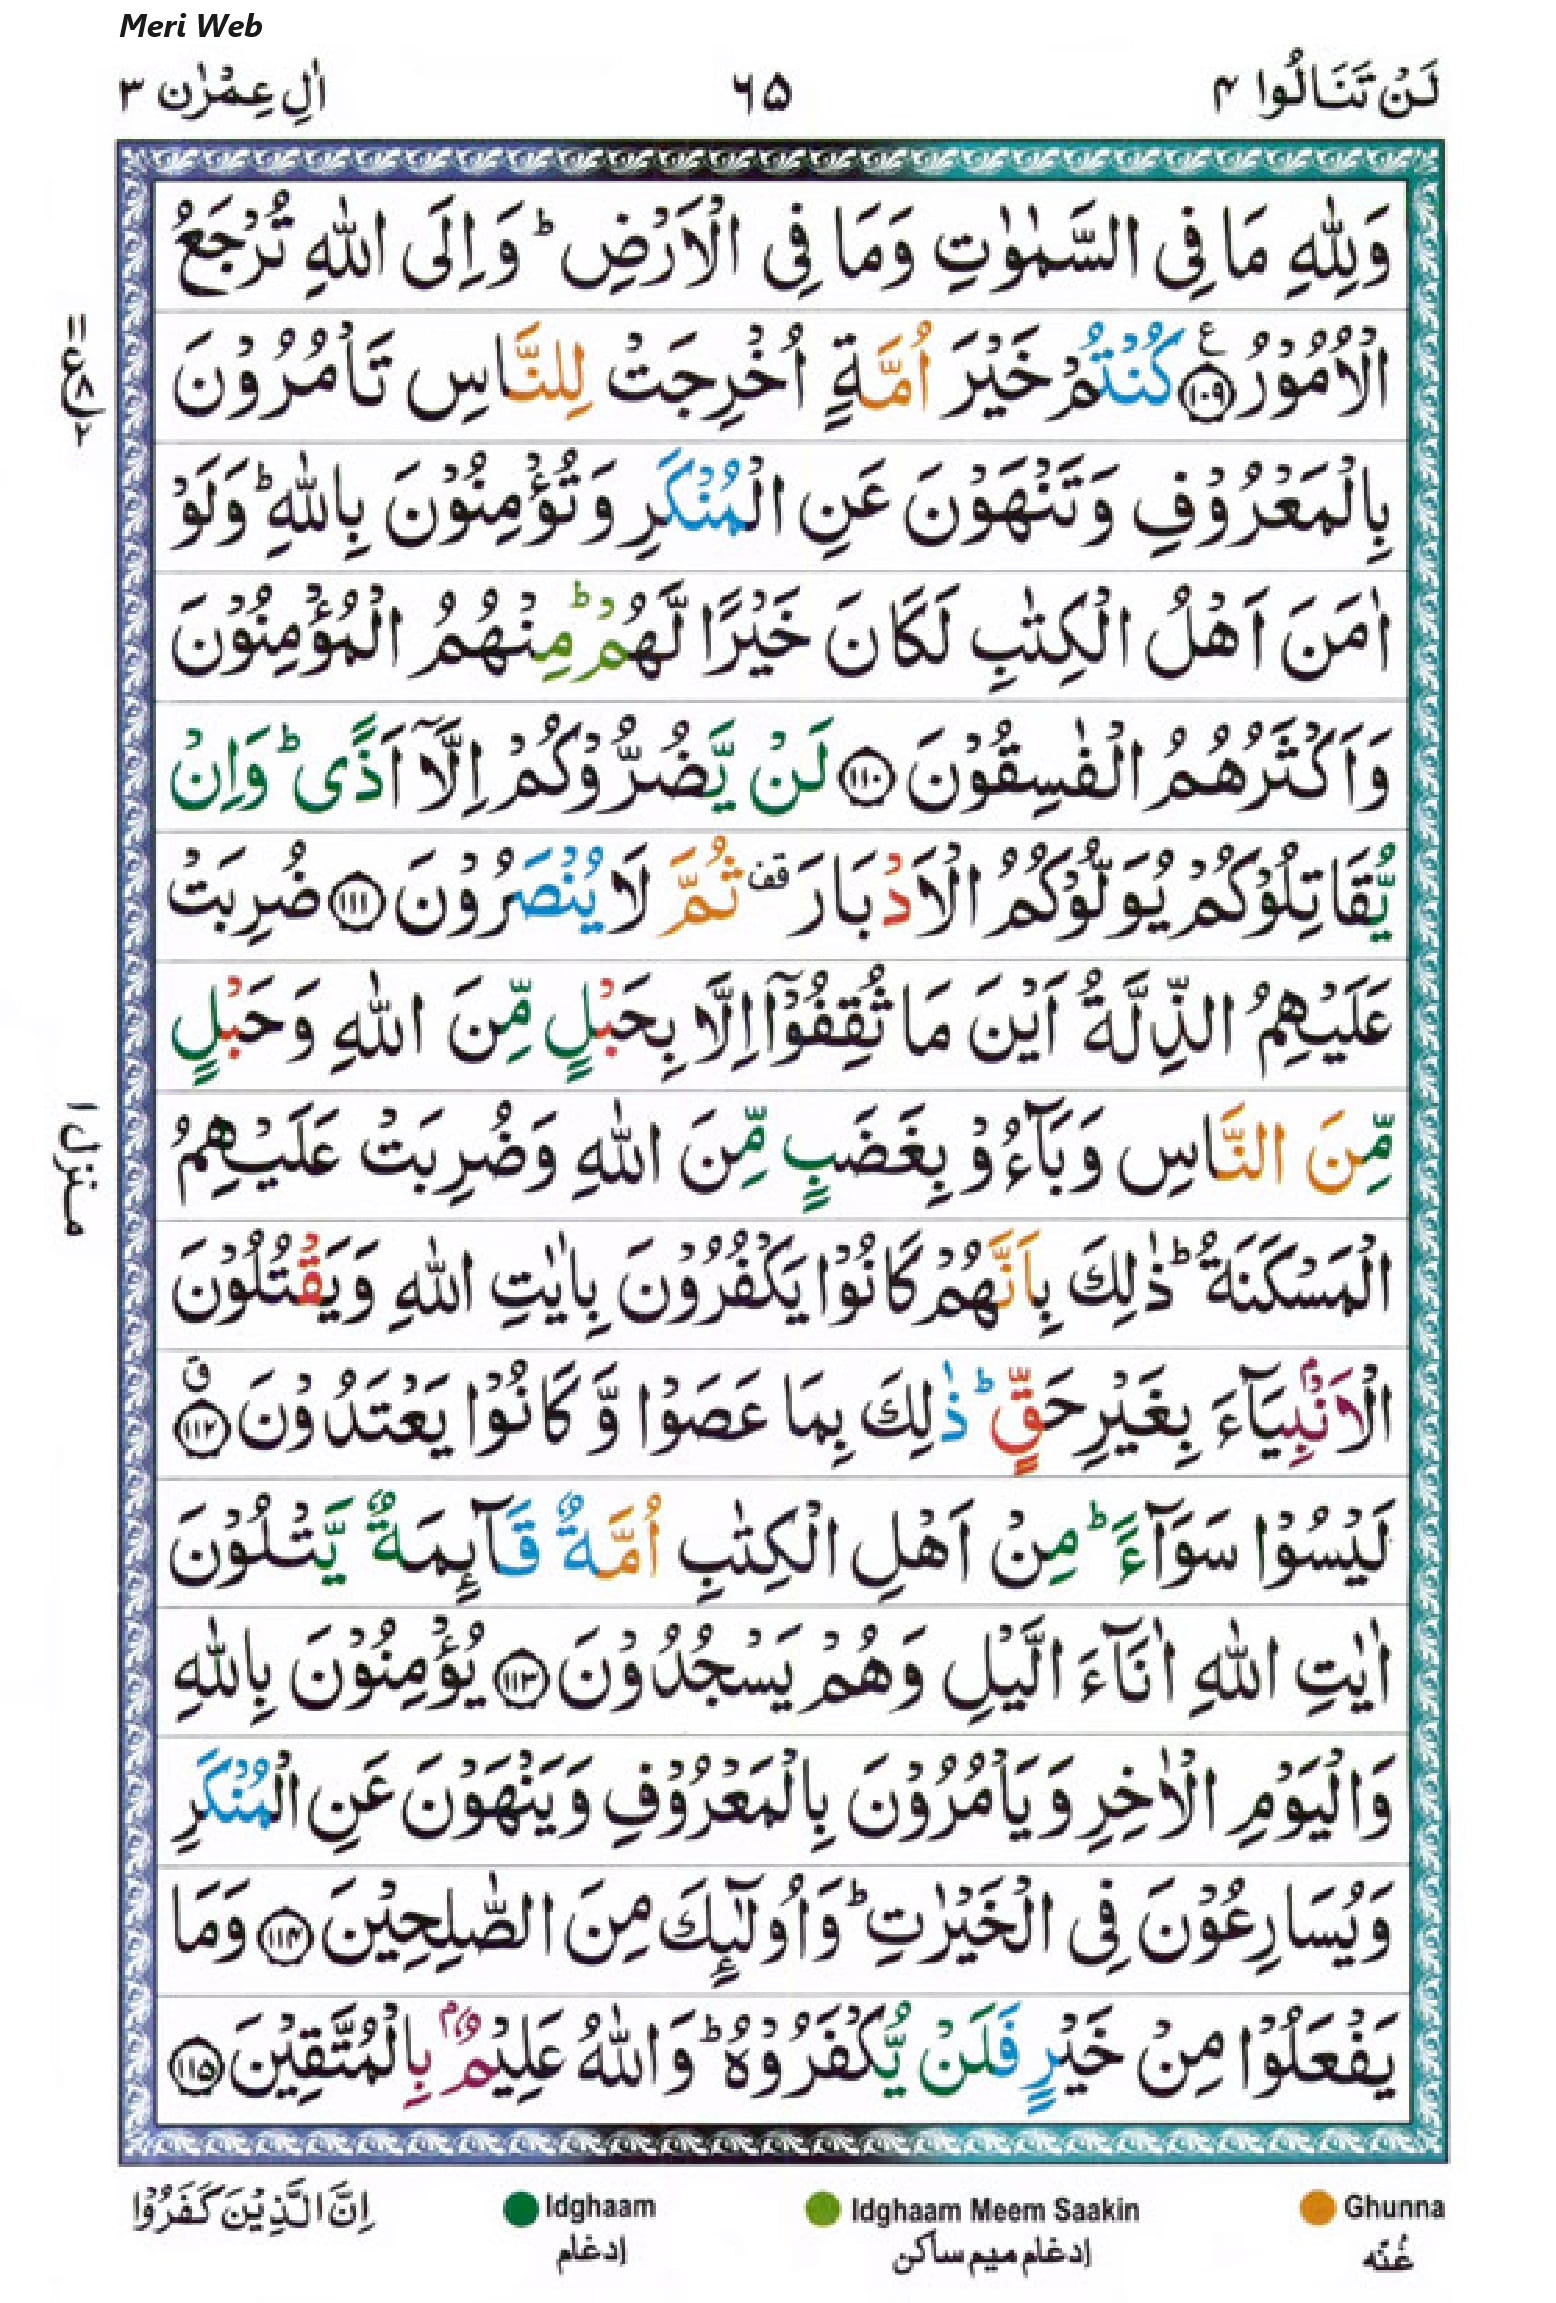 Meri Web
لَنْ تَنَالُوا ۴
۶۵
اٰلِ عِمْرٰن ۳
وَلِلّٰهِ مَا فِى السَّمٰوٰتِ وَمَا فِى الْاَرْضِ ؕ وَاِلَى اللّٰهِ تُرْجَعُ
الْاُمُوْرُ ﴿۱۰۹﴾ ع كُنْتُمْ خَيْرَ اُمَّةٍ اُخْرِجَتْ لِلنَّاسِ تَاْمُرُوْنَ
بِالْمَعْرُوْفِ وَتَنْهَوْنَ عَنِ الْمُنْكَرِ وَتُؤْمِنُوْنَ بِاللّٰهِ ؕ وَلَوْ
اٰمَنَ اَهْلُ الْكِتٰبِ لَكَانَ خَيْرًا لَّهُمْ ؕ مِنْهُمُ الْمُؤْمِنُوْنَ
وَاَكْثَرُهُمُ الْفٰسِقُوْنَ ﴿۱۱۰﴾ لَنْ يَّضُرُّوْكُمْ اِلَّاۤ اَذًى ؕ وَاِنْ
يُّقَاتِلُوْكُمْ يُوَلُّوْكُمُ الْاَدْبَارَ قف ثُمَّ لَا يُنْصَرُوْنَ ﴿۱۱۱﴾ ضُرِبَتْ
عَلَيْهِمُ الذِّلَّةُ اَيْنَ مَا ثُقِفُوْۤا اِلَّا بِحَبْلٍ مِّنَ اللّٰهِ وَحَبْلٍ
مِّنَ النَّاسِ وَبَآءُوْ بِغَضَبٍ مِّنَ اللّٰهِ وَضُرِبَتْ عَلَيْهِمُ
الْمَسْكَنَةُ ؕ ذٰلِكَ بِاَنَّهُمْ كَانُوْا يَكْفُرُوْنَ بِاٰيٰتِ اللّٰهِ وَيَقْتُلُوْنَ
الْاَنْۢبِيَآءَ بِغَيْرِ حَقٍّ ؕ ذٰلِكَ بِمَا عَصَوْا وَّ كَانُوْا يَعْتَدُوْنَ ﴿۱۱۲﴾ ق
لَيْسُوْا سَوَآءً ؕ مِنْ اَهْلِ الْكِتٰبِ اُمَّةٌ قَآئِمَةٌ يَّتْلُوْنَ
اٰيٰتِ اللّٰهِ اٰنَآءَ الَّيْلِ وَهُمْ يَسْجُدُوْنَ ﴿۱۱۳﴾ يُؤْمِنُوْنَ بِاللّٰهِ
وَالْيَوْمِ الْاٰخِرِ وَيَاْمُرُوْنَ بِالْمَعْرُوْفِ وَيَنْهَوْنَ عَنِ الْمُنْكَرِ
وَيُسَارِعُوْنَ فِى الْخَيْرٰتِ ؕ وَاُولٰٓئِكَ مِنَ الصّٰلِحِيْنَ ﴿۱۱۴﴾ وَمَا
يَفْعَلُوْا مِنْ خَيْرٍ فَلَنْ يُّكْفَرُوْهُ ؕ وَاللّٰهُ عَلِيْمٌۢ بِالْمُتَّقِيْنَ ﴿۱۱۵﴾
۱۱ ع ۲
منزل ۱
اِنَّ الَّذِيْنَ كَفَرُوْا
Idghaam
ادغام
Idghaam Meem Saakin
ادغام ميم ساكن
Ghunna
غُنّه